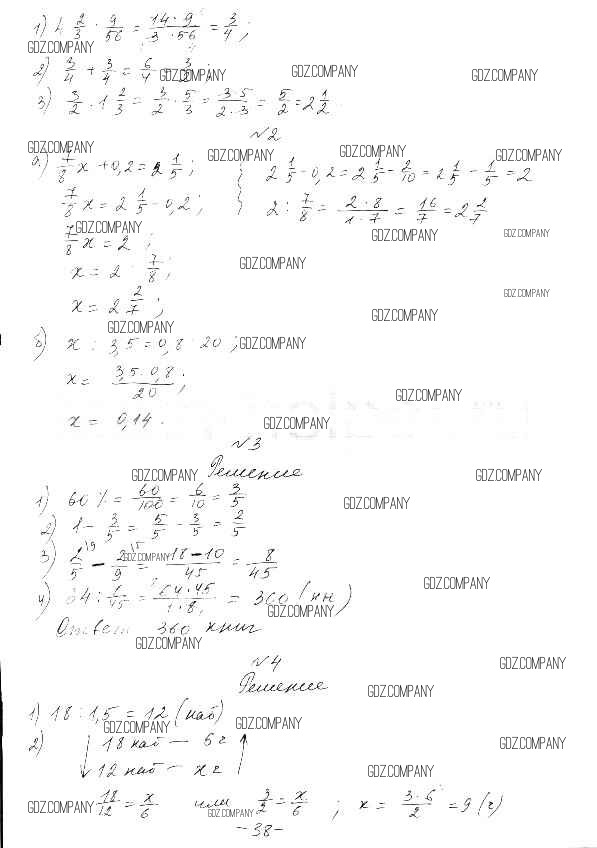 1) 4 2/3 · 9/56 = 14·9/3·56 = 3/4;
GDZ.COMPANY
2) 3/4 + 3/4 = 6/4 = 3/2;
GDZ.COMPANY GDZ.COMPANY GDZ.COMPANY
3) 3/2 · 1 2/3 = 3/2 · 5/3 = 3·5/2·3 = 5/2 = 2 1/2.
№2
GDZ.COMPANY GDZ.COMPANY GDZ.COMPANY GDZ.COMPANY
а) 7/8 x + 0,2 = 2 1/5; 2 1/5 - 0,2 = 2 1/5 - 2/10 = 2 1/5 - 1/5 = 2
7/8 x = 2 1/5 - 0,2; 2 : 7/8 = 2·8/1·7 = 16/7 = 2 2/7
GDZ.COMPANY GDZ.COMPANY GDZ.COMPANY
7/8 x = 2;
x = 2 : 7/8; GDZ.COMPANY
x = 2 2/7; GDZ.COMPANY
GDZ.COMPANY
GDZ.COMPANY
б) x : 3,5 = 0,8 : 20; GDZ.COMPANY
x = 3,5·0,8/20;
GDZ.COMPANY
x = 0,14. GDZ.COMPANY
№3
GDZ.COMPANY Решение GDZ.COMPANY
1) 60% = 60/100 = 6/10 = 3/5 GDZ.COMPANY
2) 1 - 3/5 = 5/5 - 3/5 = 2/5
3) 2/5 \9 - 2/9 \5 = 18-10/45 = 8/45
GDZ.COMPANY
GDZ.COMPANY
4) 64 : 8/45 = 64·45/1·8 = 360 (кн)
GDZ.COMPANY
Ответ 360 книг
GDZ.COMPANY
№4 GDZ.COMPANY
Решение GDZ.COMPANY
1) 18 : 1,5 = 12 (наб)
GDZ.COMPANY GDZ.COMPANY
2) 18 наб — 6 г GDZ.COMPANY
12 наб — x г GDZ.COMPANY
GDZ.COMPANY 18/12 = x/6 или 3/2 = x/6; x = 3·6/2 = 9 (г)
GDZ.COMPANY GDZ.COMPANY
-38-